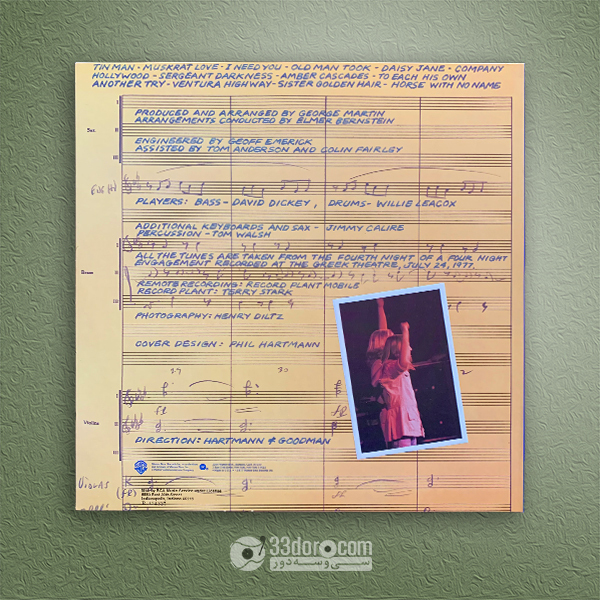 TIN MAN - MUSKRAT LOVE - I NEED YOU - OLD MAN TOOK - DAISY JANE - COMPANY
HOLLYWOOD - SERGEANT DARKNESS - AMBER CASCADES - TO EACH HIS OWN
ANOTHER TRY - VENTURA HIGHWAY - SISTER GOLDEN HAIR - HORSE WITH NO NAME
PRODUCED AND ARRANGED BY GEORGE MARTIN
ARRANGEMENTS CONDUCTED BY ELMER BERNSTEIN
Sax.
I
II
III
ENGINEERED BY GEOFF EMERICK
ASSISTED BY TOM ANDERSON AND COLIN FAIRLEY
PLAYERS: BASS - DAVID DICKEY, DRUMS - WILLIE LEACOX
ADDITIONAL KEYBOARDS AND SAX - JIMMY CALIRE
PERCUSSION - TOM WALSH
ALL THE TUNES ARE TAKEN FROM THE FOURTH NIGHT OF A FOUR NIGHT
ENGAGEMENT RECORDED AT THE GREEK THEATRE, JULY 24, 1977.
REMOTE RECORDING: RECORD PLANT MOBILE
RECORD PLANT: TERRY STARK
PHOTOGRAPHY: HENRY DILTZ
COVER DESIGN: PHIL HARTMANN
29
30
Violins
I
II
DIRECTION: HARTMANN & GOODMAN
VIOLAS
33doro.com
سی و سه دور